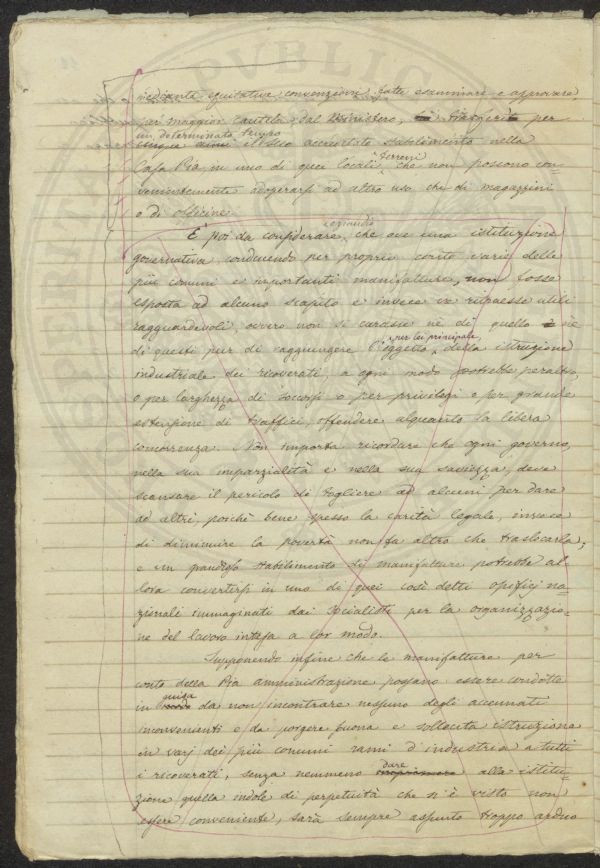 mediante equitative convenzioni fatte esaminare e approvare
per maggior cautela dal Ministero, si trasferì per
un determinato tempo
cinque anni il suo accordato stabilimento nella
terreni
Casa Pia, in uno di quei locali, che non possono con-
venientemente adoperarsi ad altro uso che di magazzini
o di officine.
eziandio
È poi da considerare, che ove una istituzione
governativa, conducendo per proprio conto varie delle
più comuni e importanti manifatture, non fosse
esposta ad alcuno scapito e invece ne ritraesse utili
ragguardevoli, ovvero non si curasse nè di quello nè
per lei principale,
di questi pur di raggiungere l'oggetto, della istruzione
industriale dei ricoverati, a ogni modo potrebbe, peraltro,
o per larghezza di soccorsi o per privilegi o per grande
estensione di traffici, offendere alquanto la libera
concorrenza. Non importa ricordare che ogni governo,
nella sua imparzialità e nella sua saviezza, deve
scansare il pericolo di togliere ad alcuni per dare
ad altri, poichè bene spesso la carità legale, invece
di diminuire la povertà non fa altro che traslocarla;
e un grandioso stabilimento di manifatture potrebbe al-
lora convertirsi in uno di quei così detti opifizj na-
zionali immaginati dai Socialisti per la organizzazio-
ne del lavoro intesa a lor modo.
Supponendo infine che le manifatture per
conto della Pia amministrazione possano essere condotte
guisa
in modo da non incontrare nessuno degli accennati
inconvenienti e da porgere buona e sollecita istruzione
in varj dei più comuni rami d'industria a tutti
dare
i ricoverati, senza nemmeno imprimere alla istitu-
zione quella indole di perpetuità che s'è visto non
essere conveniente, sarà sempre assunto troppo arduo